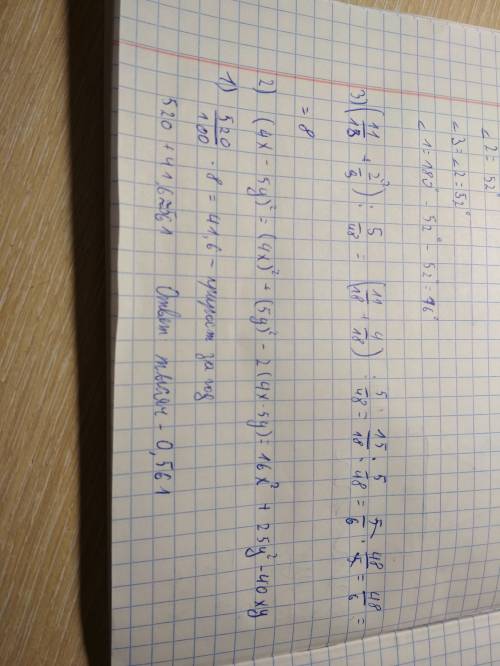 ∠2 = 52°
∠3 = ∠2 = 52°
∠1 = 180° - 52° - 52° = 76°
3) (11/18 + 2/9) : 5/48 = (11/18 + 4/18) : 5/48 = 15/18 : 5/48 = 5/6 · 48/5 = 48/6 =
= 8
2) (4x - 5y)² = (4x)² + (5y)² - 2(4x·5y) = 16x² + 25y² - 40xy
1) 520/100 · 8 = 41,6 - прирост за год
520 + 41,6 ≈ 561 Ответ тысяч - 0,561